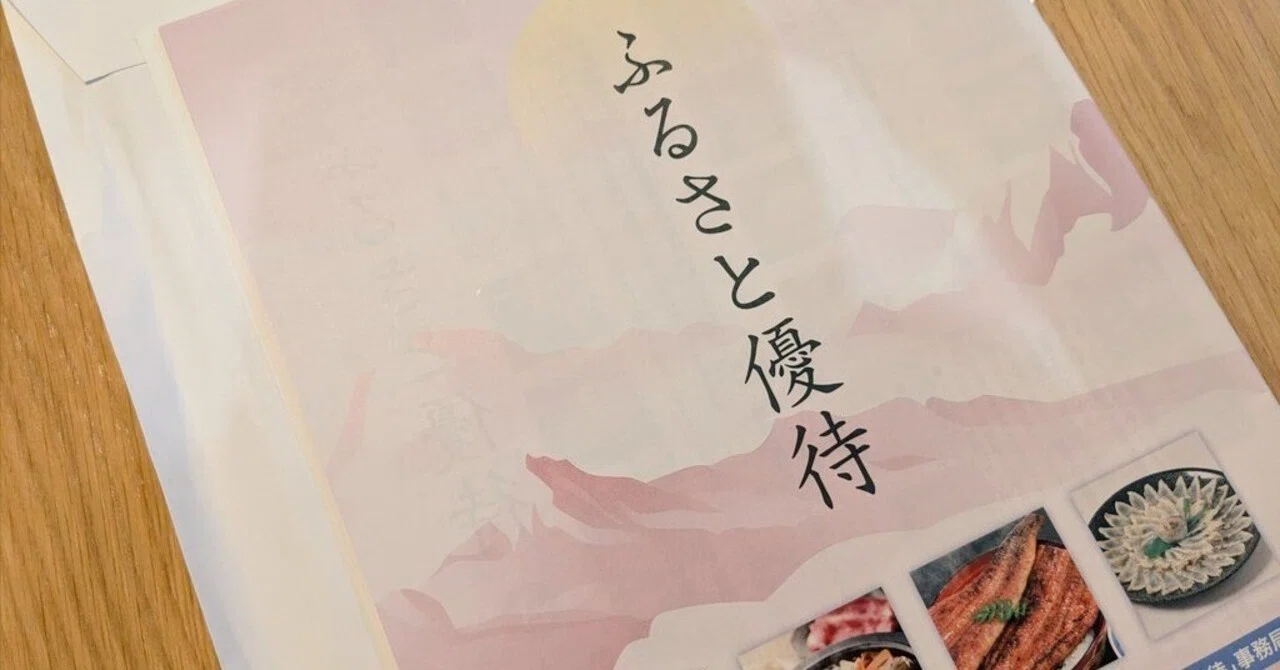 ふるさと優待
事務局